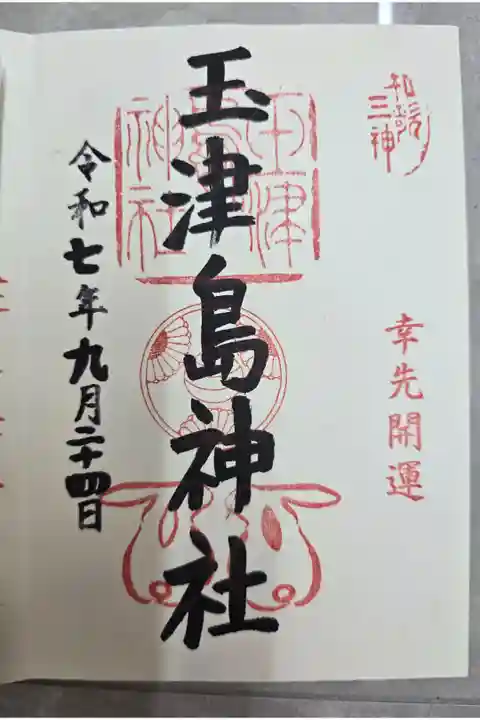 和歌
三神
幸先開運
玉津島神社
玉津島神社
令和七年九月二十四日